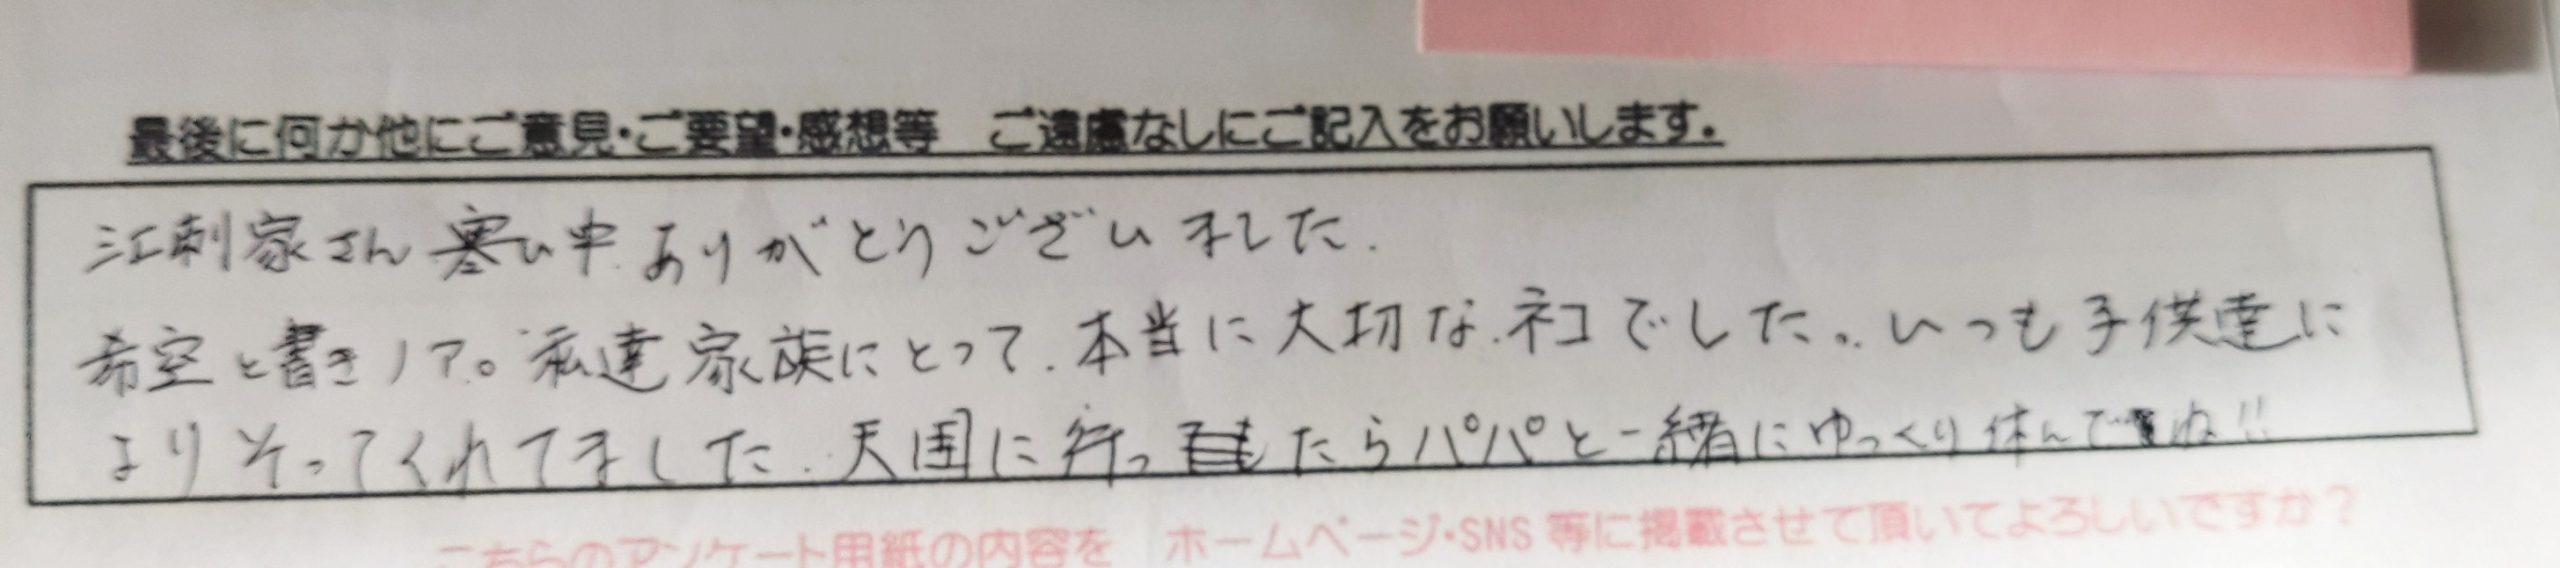 最後に何か他にご意見・ご要望・感想等　ご遠慮なしにご記入をお願いします。
江刺家さん寒い中.ありがとうございました.
希空と書きノア。私達家族にとって.本当に大切な.ネコでした.いつも子供達に
よりそってくれてました.天国に行ったらパパと一緒にゆっくり休んでね!!
こちらのアンケート用紙の内容を　ホームページ・SNS 等に掲載させて頂いてよろしいですか？